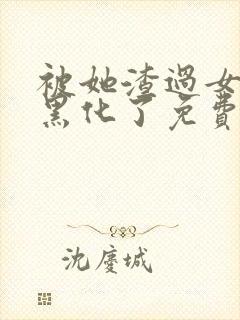 被她渣过女
黑化了免費
沈慶城